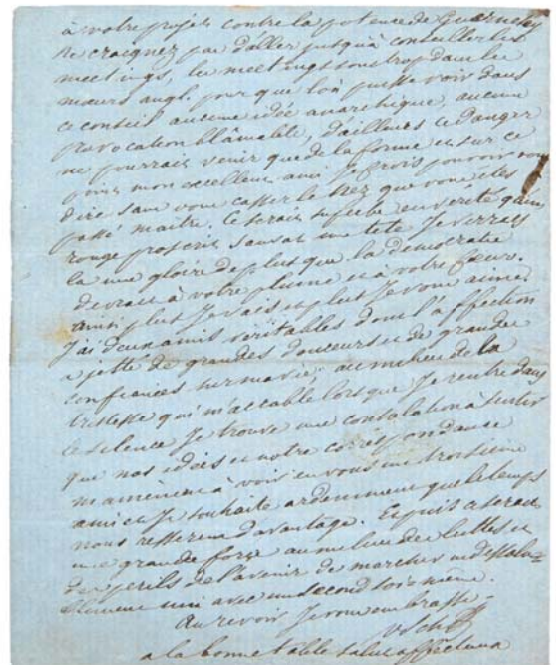 à votre projet contre la potence de Guernesey
Ne craignez pas d'aller jusqu'à conseiller les
meetings, les meetings sont trop dans les
mœurs angl. pour que l'on puisse voir dans
ce conseil aucune idée anarchique, aucune
provocation blâmable, d'ailleurs ce danger
ne pourrait venir que de la forme et sur ce
point mon excellent ami je crois pouvoir vous
dire sans vous casser le nez que vous êtes
passé maître. Ce serait superbe en vérité qu'un
rouge proscrit sauvat une tête Je verrais
là une gloire de plus que la démocratie
devrait à votre plume et à votre cœur.
ainsi plus Je vais et plus Je vous aime.
J'ai deux amis véritables dont l'affection
a jetté de grandes douceurs et de grandes
confiances sur ma vie. au milieu de la
tristesse qui m'accable lorsque Je rentre dans
le silence Je trouve une consolation à sentir
que nos idées et notre corespondanse
m'amènent à voir en vous un troisième
ami et Je souhaite ardemment que le temps
nous resserre davantage. Et puis ce serait
une grande force au milieu des luttes et
des perils de l'avenir de marcher indissolu=
blement uni avec un second soi-même.
Au revoir Je vous embrasse -
V Sch
à la bonne table salut affectueux